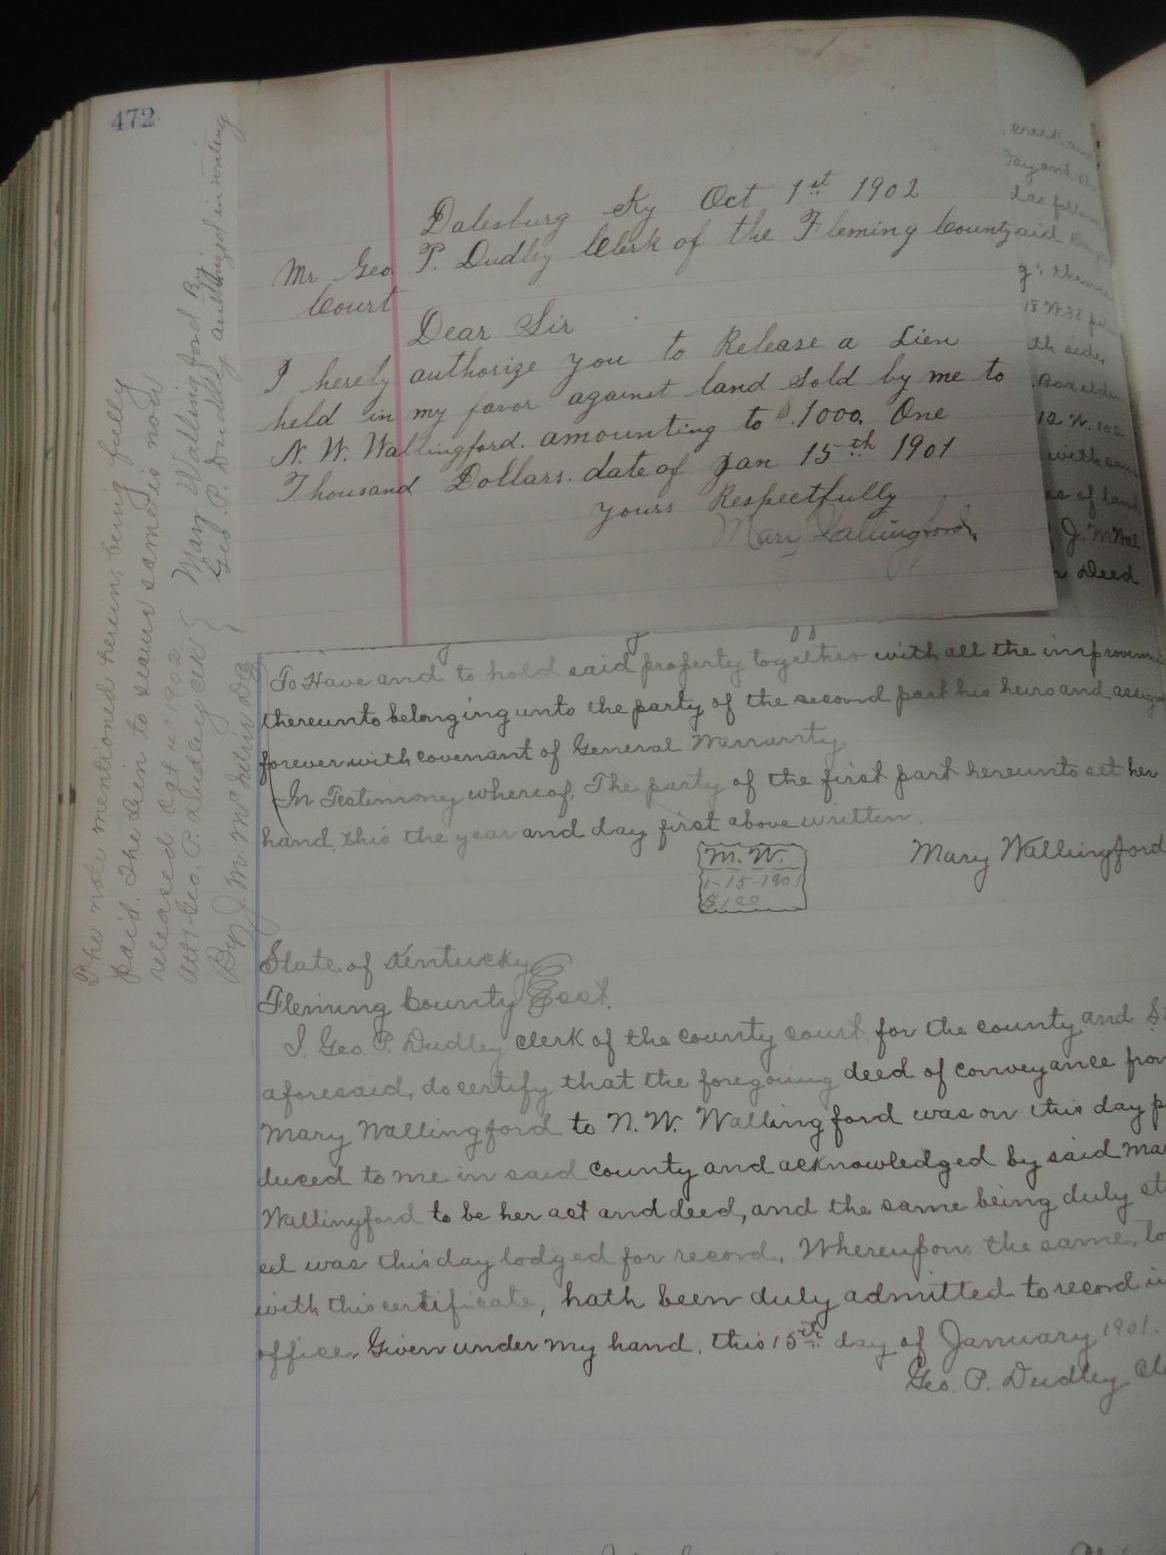 472
Dalesburg Ky Oct 1st 1902
Mr Geo. P. Dudley Clerk of the Fleming County
Court
Dear Sir
I herely authorize you to Release a Lien
held in my favor against land sold by me to
N. W. Wallingford. amounting to $1000. One
Thousand Dollars. date of Jan 15th 1901
yours Respectfully
Mary Wallingford,
creek and
th side,
12 W. 100
with
s of land
J. M. Wal
Deed
The note mentioned herein, being fully
paid. The Lien to secure same is now
released Oct 4" 1902
Mary Wallingford By
Geo. P. Dudley authorized in writing
Att: Geo. P. Dudley Clk
By J. M.
To Have and to hold said property together with all the improvem
thereunto belonging unto the party of the second part his heirs and assign
forever with covenant of General Warranty
In Testimony whereof, The party of the first part hereunto set her
hand, this the year and day first above written.
M. W.
1-15-1901
$1.00
Mary Wallingford
State of Kentucky
Fleming County Sct.
I, Geo. P. Dudley clerk of the county court for the county and S
aforesaid, do certify that the foregoing deed of conveyance from
Mary Wallingford to N. W. Wallingford was on this day p
duced to me in said county and acknowledged by said Ma
Wallingford to be her act and deed, and the same being duly st
ed was this day lodged for record. Whereupon the same, to
with this certificate, hath been duly admitted to record i
office. Given under my hand, this 15th day of January 1901.
Geo. P. Dudley Cl